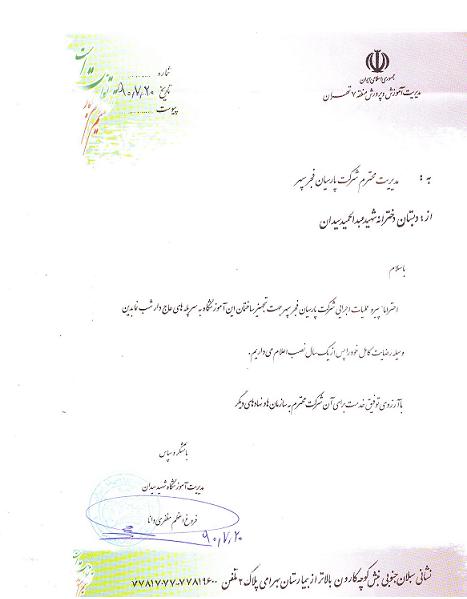 جمهوری اسلامی ایران
مدیریت آموزش و پرورش منطقه ۷ تهران
شماره ............
تاریخ ۹۰,۷,۲۰
پیوست ............
به : مدیریت محترم شرکت پارسیان فجر سپهر
از : دبستان دخترانه شهید عبدالحمید بیدان
باسلام
احتراما" پیرو عملیات اجرایی شرکت پارسیان فجر سپهر جهت تجهیز ساختمان این آموزشگاه به سرپله های عاج دار شب نما بدین
وسیله رضایت کامل خود را پس از یک سال نصب اعلام می داریم .
با آرزوی توفیق خدمت برای آن شرکت محترم به سازمان ها و نهادهای دیگر
باتشکر و سپاس
مدیریت آموزشگاه شهید بیدان
فروغ اعظم مظفری دانا
۹۰,۷,۲۰
نشانی سبلان جنوبی نبش کوچه کارون بالاتر از بیمارستان بهرامی پلاک ۲ تلفن ۷۷۸۱۶۶۰۰-۷۷۸۱۷۷۰۷۷